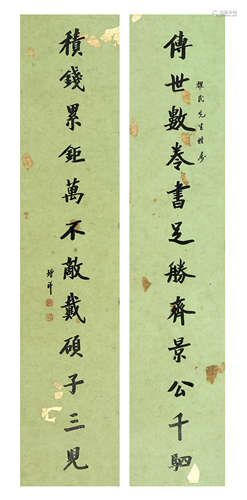 耀民先生雅屬
傳世數卷書足勝齊景公千駟
積錢累鉅萬不敵戴碩子三兒
增祥